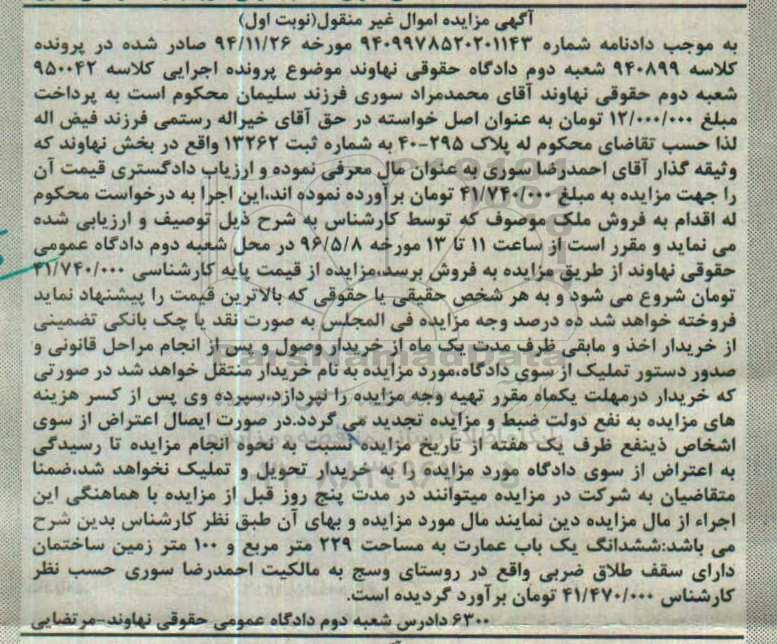 آگهی مزایده اموال غیر منقول(نوبت اول)
به موجب دادنامه شماره ۹۴۰۹۹۷۸۵۲۰۲۰۱۱۴۳ مورخه ۹۴/۱۱/۲۶ صادر شده در پرونده
کلاسه ۹۴۰۸۹۹ شعبه دوم دادگاه حقوقی نهاوند موضوع پرونده اجرایی کلاسه ۹۵۰۰۴۲
شعبه دوم حقوقی نهاوند آقای محمدمراد سوری فرزند سلیمان محکوم است به پرداخت
مبلغ ۱۲/۰۰۰/۰۰۰ تومان به عنوان اصل خواسته در حق آقای خیراله رستمی فرزند فیض اله
لذا حسب تقاضای محکوم له پلاک ۲۹۵-۴۰ به شماره ثبت ۱۳۲۶۲ واقع در بخش نهاوند که
وثیقه گذار آقای احمدرضا سوری به عنوان مال معرفی نموده و ارزیاب دادگستری قیمت آن
را جهت مزایده به مبلغ ۴۱/۷۴۰/۰۰۰ تومان برآورده نموده اند،این اجرا به درخواست محکوم
له اقدام به فروش ملک موصوف که توسط کارشناس به شرح ذیل توصیف و ارزیابی شده
می نماید و مقرر است از ساعت ۱۱ تا ۱۳ مورخه ۹۶/۵/۸ در محل شعبه دوم دادگاه عمومی
حقوقی نهاوند از طریق مزایده به فروش برسد،مزایده از قیمت پایه کارشناسی ۴۱/۷۴۰/۰۰۰
تومان شروع می شود و به هر شخص حقیقی یا حقوقی که بالاترین قیمت را پیشنهاد نماید
فروخته خواهد شد ده درصد وجه مزایده فی المجلس به صورت نقد یا چک بانکی تضمینی
از خریدار اخذ و مابقی ظرف مدت یک ماه از خریدار وصول و پس از انجام مراحل قانونی و
صدور دستور تملیک از سوی دادگاه،مورد مزایده به نام خریدار منتقل خواهد شد در صورتی
که خریدار درمهلت یکماه مقرر تهیه وجه مزایده را نپردازد،سپرده وی پس از کسر هزینه
های مزایده به نفع دولت ضبط و مزایده تجدید می گردد.در صورت ایصال اعتراض از سوی
اشخاص ذینفع ظرف یک هفته از تاریخ مزایده نسبت به نحوه انجام مزایده تا رسیدگی
به اعتراض از سوی دادگاه مورد مزایده را به خریدار تحویل و تملیک نخواهد شد،ضمنا
متقاضیان به شرکت در مزایده میتوانند در مدت پنج روز قبل از مزایده با هماهنگی این
اجراء از مال مزایده دین نمایند مال مورد مزایده و بهای آن طبق نظر کارشناس بدین شرح
می باشد:ششدانگ یک باب عمارت به مساحت ۲۲۹ متر مربع و ۱۰۰ متر زمین ساختمان
دارای سقف طلاق ضربی واقع در روستای وسج به مالکیت احمدرضا سوری حسب نظر
کارشناس ۴۱/۴۷۰/۰۰۰ تومان برآورد گردیده است.
۶۳۰۰ دادرس شعبه دوم دادگاه عمومی حقوقی نهاوند-مرتضایی
ParsNamadData